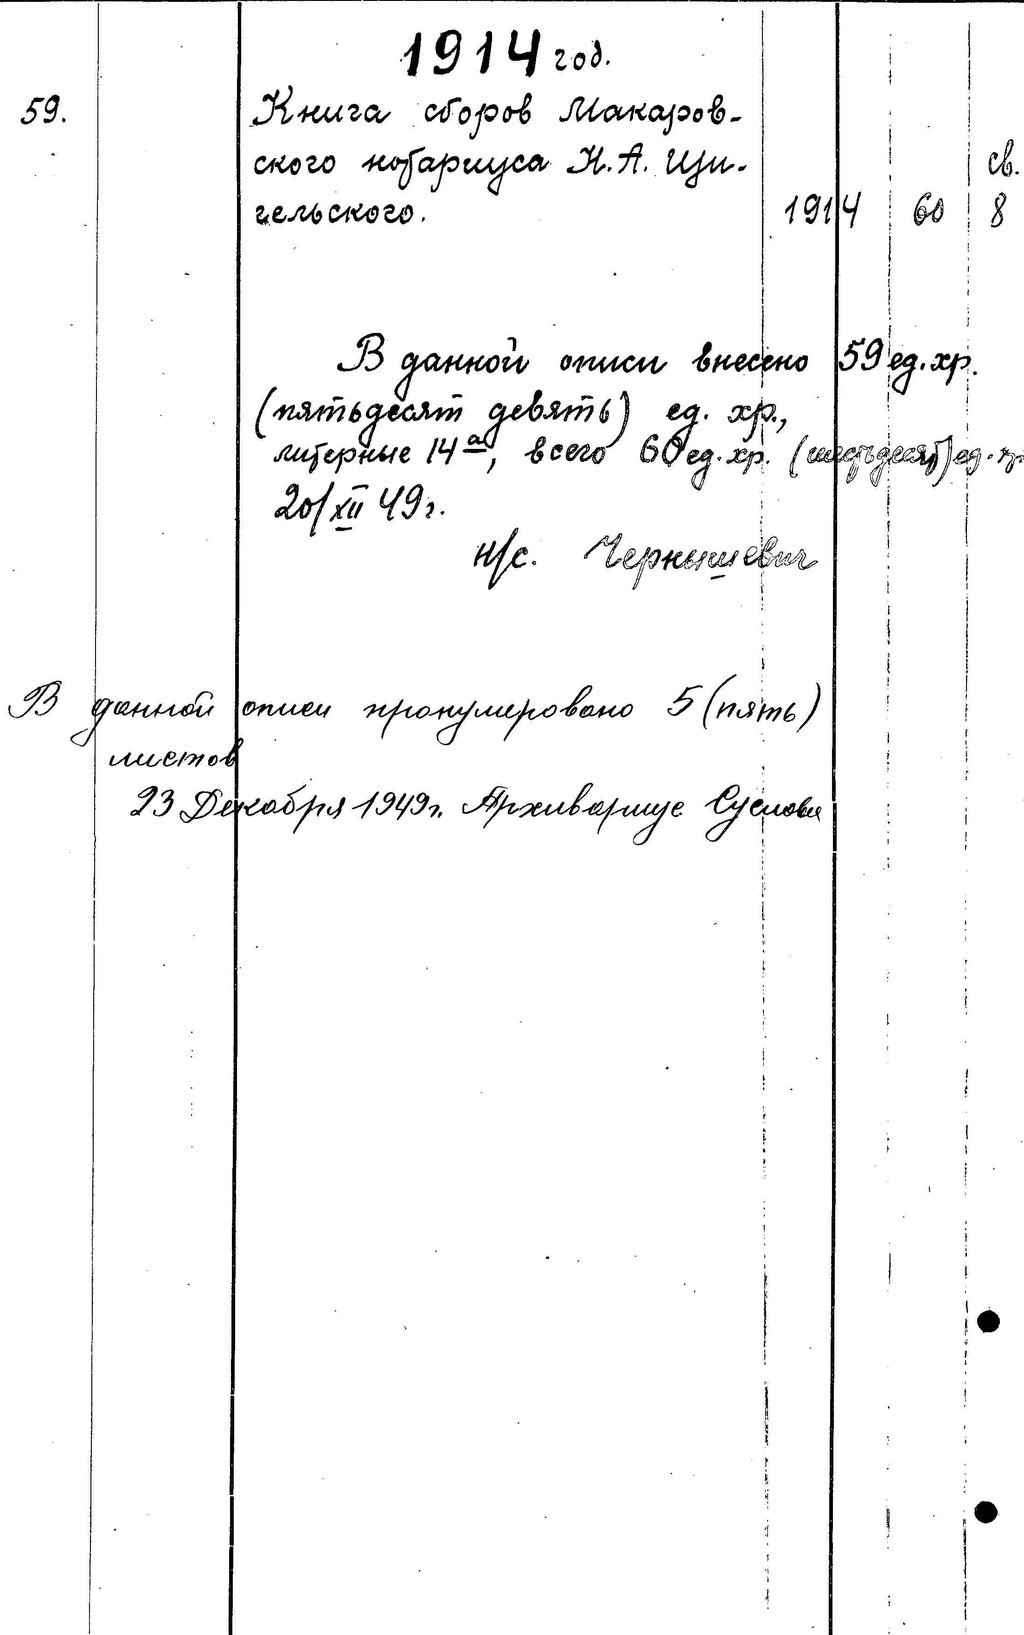 1914 год.
59. Книга сборов Макаров-
ского нотариуса Н. А. Щи- св.
гельского. 1914 60 8
В данной описи внесено 59 ед. хр.
(пятьдесят девять) ед. хр.,
литерные 14а, всего 60 ед. хр. (шестьдесят) ед. хр.
20/XII 49 г.
н/с. Чернышевич
В данной описи пронумеровано 5 (пять)
листов
23 Декабря 1949 г. Архивариус Суслова